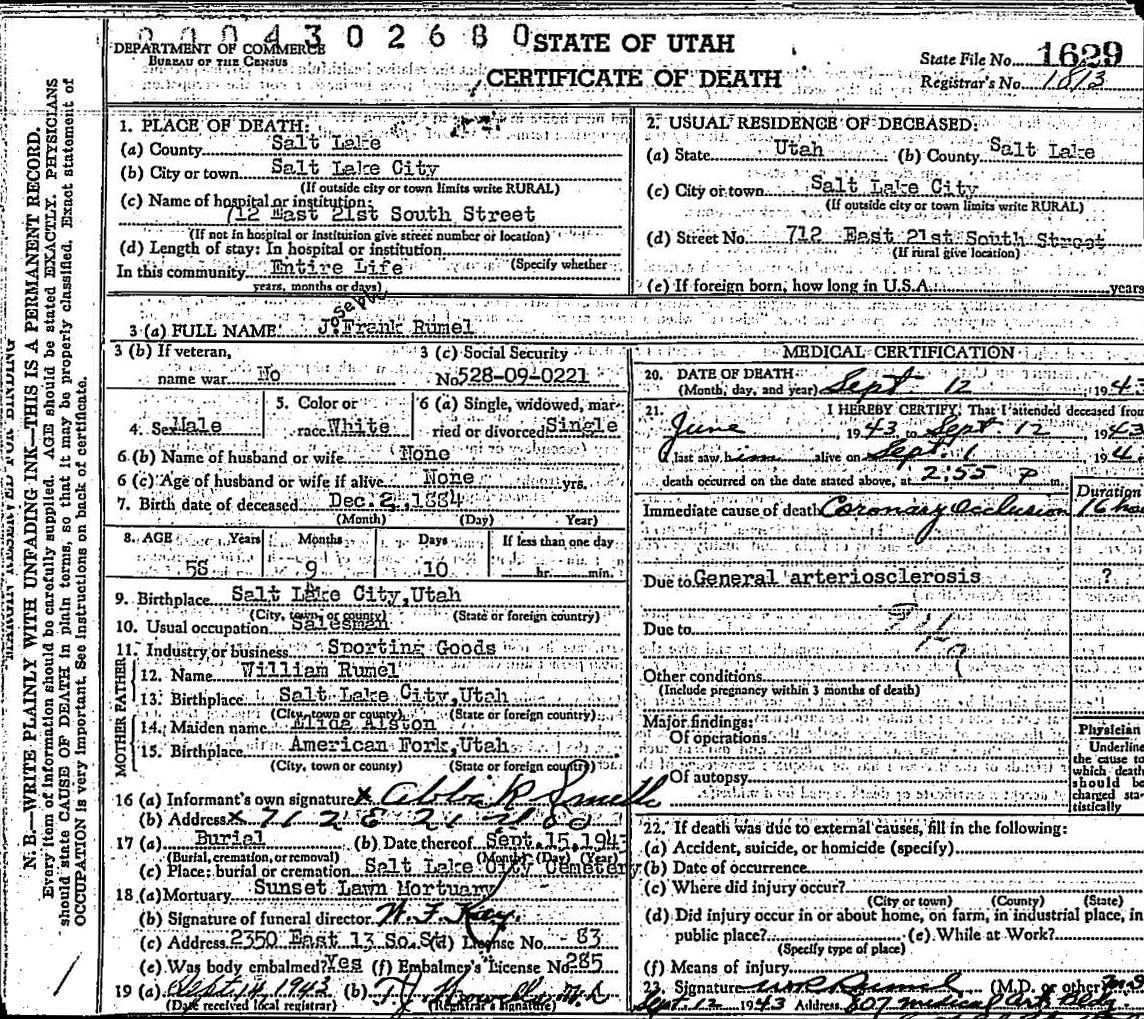 N. B.—WRITE PLAINLY WITH UNFADING INK—THIS IS A PERMANENT RECORD.
Every item of information should be carefully supplied. AGE should be stated EXACTLY. PHYSICIANS
should state CAUSE OF DEATH in plain terms, so that it may be properly classified. Exact statement of
OCCUPATION is very important. See instructions on back of certificate.
0004302680
DEPARTMENT OF COMMERCE
BUREAU OF THE CENSUS
STATE OF UTAH
CERTIFICATE OF DEATH
State File No. 1629
Registrar's No. 1813
1. PLACE OF DEATH:
(a) County Salt Lake
(b) City or town Salt Lake City
(If outside city or town limits write RURAL)
(c) Name of hospital or institution:
712 East 21st South Street
(If not in hospital or institution give street number or location)
(d) Length of stay: In hospital or institution
(Specify whether
In this community Entire Life
years, months or days)
2. USUAL RESIDENCE OF DECEASED:
(a) State Utah (b) County Salt Lake
(c) City or town Salt Lake City
(If outside city or town limits write RURAL)
(d) Street No. 712 East 21st South Street
(If rural give location)
(e) If foreign born, how long in U.S.A. years
3 (a) FULL NAME J. Frank Rumel
3 (b) If veteran,
name war No
3 (c) Social Security
No 528-09-0221
4. Sex Male
5. Color or
race White
6 (a) Single, widowed, mar-
ried or divorced Single
6 (b) Name of husband or wife None
6 (c) Age of husband or wife if alive None yrs.
7. Birth date of deceased Dec. 2, 1884
(Month) (Day) Year)
8. AGE Years Months Days If less than one day
58 9 10 hr. min.
9. Birthplace Salt Lake City, Utah
(City, town or county) (State or foreign country)
10. Usual occupation Salesman
11. Industry or business Sporting Goods
FATHER
12. Name William Rumel
13. Birthplace Salt Lake City, Utah
(City, town or county) (State or foreign country)
MOTHER
14. Maiden name Eliza Alston
15. Birthplace American Fork, Utah
(City, town or county) (State or foreign country)
16 (a) Informant's own signature x Abbie R Smith
(b) Address x 712 E 21 So
17 (a) Burial (b) Date thereof Sept. 15, 1943
(Burial, cremation, or removal) (Month) (Day) (Year)
(c) Place: burial or cremation Salt Lake City Cemetery
18 (a) Mortuary Sunset Lawn Mortuary
(b) Signature of funeral director W. F. Kay
(c) Address 2350 East 13 So. St. (d) License No. 83
(e) Was body embalmed? Yes (f) Embalmer's License No 285
19 (a) Sept 14, 1943 (b) T J Howells M.D
(Date received local registrar) (Registrar's signature)
MEDICAL CERTIFICATION
20. DATE OF DEATH
(Month, day, and year) Sept 12 194
21. I HEREBY CERTIFY, That I attended deceased from
June, 1943 to Sept. 12, 1943
I last saw him alive on Sept. 1, 194
death occurred on the date stated above, at 2:55 P m.
Duration
Immediate cause of death Coronary Occlusion 16
Due to General arteriosclerosis ?
Due to
Other conditions
(Include pregnancy within 3 months of death)
Major findings:
Of operations
Of autopsy
Physician
Underline
the cause to
which death
should be
charged sta-
tistically
22. If death was due to external causes, fill in the following:
(a) Accident, suicide, or homicide (specify)
(b) Date of occurrence
(c) Where did injury occur?
(City or town) (County) (State)
(d) Did injury occur in or about home, on farm, in industrial place, in
public place? (e) While at Work?
(Specify type of place)
(f) Means of injury
23. Signature (M.D. or other
Sept 12 1943 Address 807 medical Arts Bldg